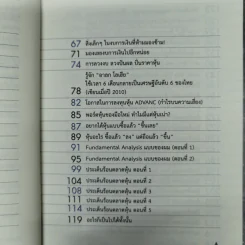 67 สิ่งเล็กๆ ในงบการเงินที่ห้ามมองข้าม!
71 มองงบการเงินไปอีกหน่อย
74 การลงทุน ดวงปันผล ปั่นราคาหุ้น
รู้จัก "มาดก โอเสีย"
ใช้เวลา 6 เดือนกลายเป็นเศรษฐีอันดับ 6 ของไทย
78 (เขียนเมื่อปี 2010)
82 โอกาสในการลงทุนหุ้น ADVANC (กำไรบนความเสี่ยง)
85 พอร์ตหุ้นของมือใหม่ ทำไมมีแต่หุ้นเน่า!
87 อยากได้หุ้นแบบซื้อแล้ว "ขึ้นเลย"
89 หุ้นอะไร ซื้อแล้ว "ลง" แต่ถือแล้ว "ขึ้น"
91 Fundamental Analysis แบบของผม (ตอนที่ 1)
95 Fundamental Analysis แบบของผม (ตอนที่ 2)
99 ประเด็นร้อนตลาดหุ้น ตอนที่ 1
104 ประเด็นร้อนตลาดหุ้น ตอนที่ 2
108 ประเด็นร้อนตลาดหุ้น ตอนที่ 3
111 ประเด็นร้อนตลาดหุ้น ตอนที่ 4
114 ประเด็นร้อนตลาดหุ้น ตอนที่ 5
119 อะไรก็เป็นไปได้ทั้งนั้น